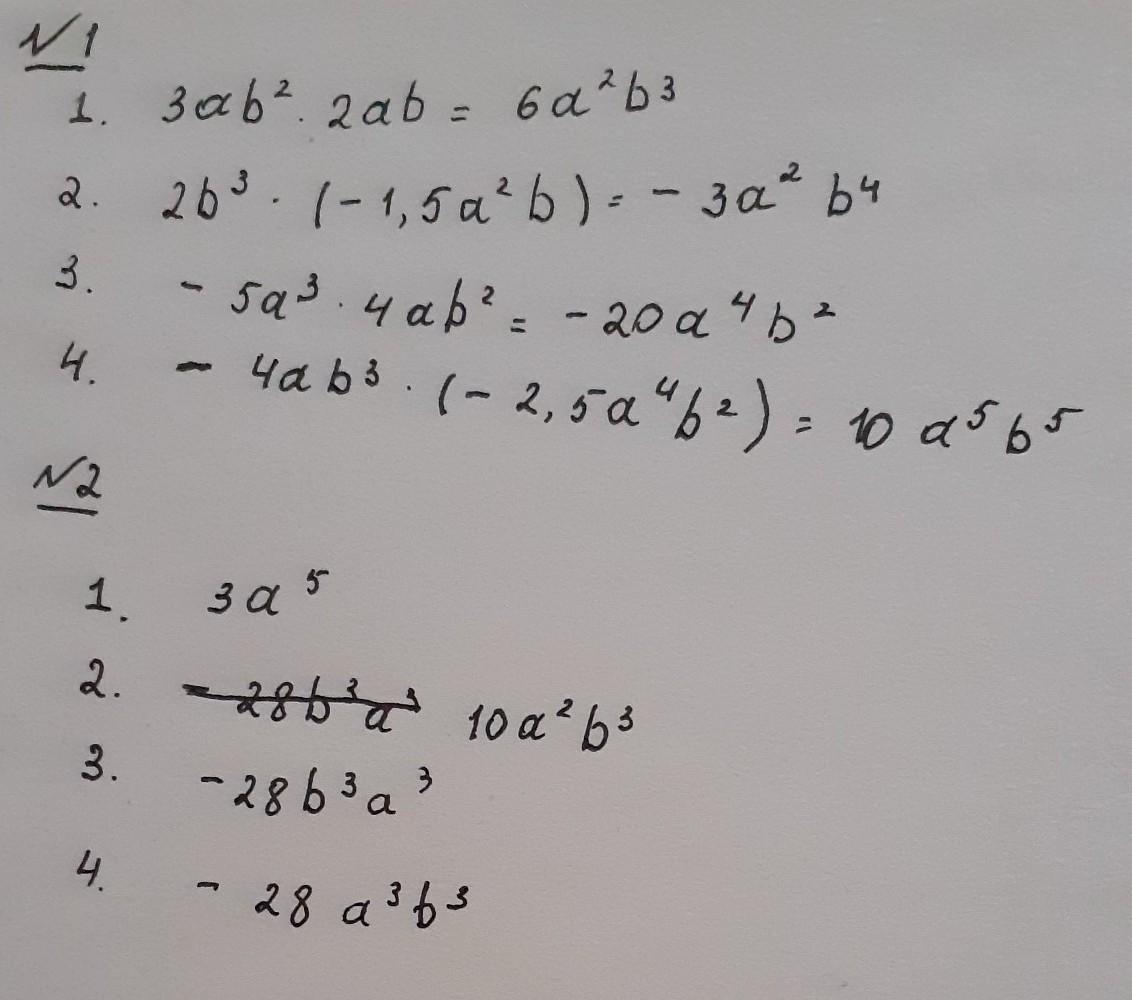 №1
1. 3ab² · 2ab = 6a²b³
2. 2b³ · (-1,5a²b) = -3a² b⁴
3. -5a³ · 4ab² = -20a⁴b²
4. -4ab³ · (-2,5a⁴b²) = 10 a⁵b⁵
№2
1. 3a⁵
2. -28b³a³ 10a²b³
3. -28b³a³
4. -28 a³b³